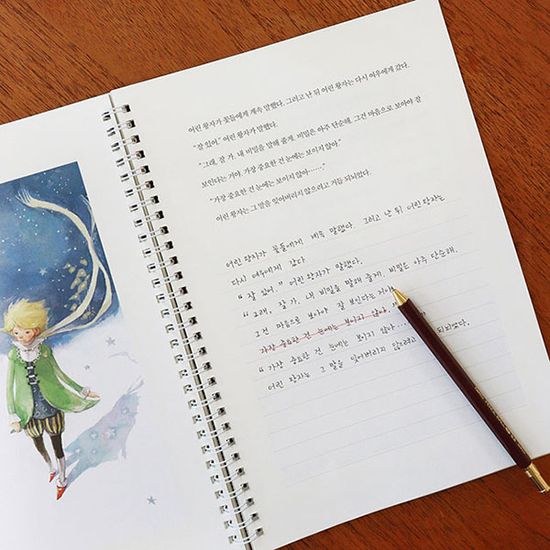 어린 왕자가 꽃들에게 계속 말했다. 그러고 난 뒤 어린 왕자는 다시 여우에게 갔다.
"잘 있어." 어린 왕자가 말했다.
"그래, 잘 가. 내 비밀을 말해 줄게. 비밀은 아주 단순해. 그건 마음으로 보아야 잘
보인다는 거야. 가장 중요한 건 눈에는 보이지 않아."
"가장 중요한 건 눈에는 보이지 않아……."
어린 왕자는 그 말을 잊어버리지 않으려고 거듭 되뇌었다.
어린 왕자가 꽃들에게 계속 말했다. 그러고 난 뒤 어린 왕자는
다시 여우에게 갔다
" 잘 있어. " 어린 왕자가 말했다.
" 그래, 잘 가. 내 비밀을 말해 줄게. 비밀은 아주 단순해.
그건 마음으로 보아야 잘 보인다는 거야.
가장 중요한 건 눈에는 보이지 않아.
" 가장 중요한 건 눈에는 보이지 않아…
어린 왕자는 그 말을 잊어버리지 않으려고 되뇌었다.